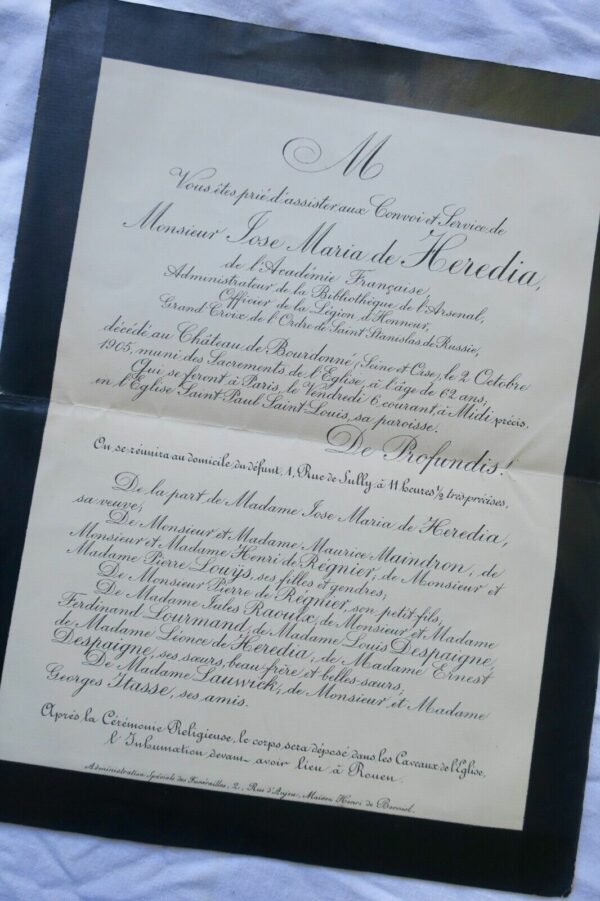 M
Vous êtes prié d'assister aux Convoi et Service de
Monsieur Jose Maria de Heredia,
de l'Académie Française,
Administrateur de la Bibliothèque de l'Arsenal,
Officier de la Légion d'Honneur,
Grand Croix de l'Ordre de Saint Stanislas de Russie,
décédé au Château de Bourdonné, (Seine et Oise), le 2 Octobre
1905, muni des Sacrements de l'Eglise, à l'âge de 62 ans;
Qui se feront à Paris, le Vendredi 6 courant, à Midi précis,
en l'Eglise Saint Paul Saint-Louis, sa paroisse.
De Profundis!
On se réunira au domicile du défunt, 1, Rue de Sully à 11 heures ½ très précises,
De la part de Madame Jose Maria de Heredia,
sa veuve;
De Monsieur et Madame Maurice Maindron, de
Monsieur et Madame Henri de Régnier, de Monsieur et
Madame Pierre Louÿs, ses filles et gendres;
De Monsieur Pierre de Régnier, son petit-fils,
De Madame Jules Raoulx, de Monsieur et Madame
Ferdinand Lourmand, de Madame Louis Despaigne,
de Madame Léonce de Heredia, de Madame Ernest
Despaigne, ses sœurs, beau-frère et belles-sœurs;
De Madame Lauwick, de Monsieur et Madame
Georges Itasse, ses amis.
Après la Cérémonie Religieuse, le corps sera déposé dans les Caveaux de l'Eglise,
l'Inhumation devant avoir lieu à Rouen.
Administration Spéciale des Funérailles, 2, Rue d'Maison Henri de